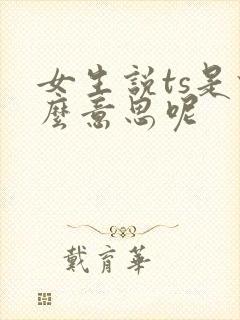 女生説ts是
麼意思呢
戴育華